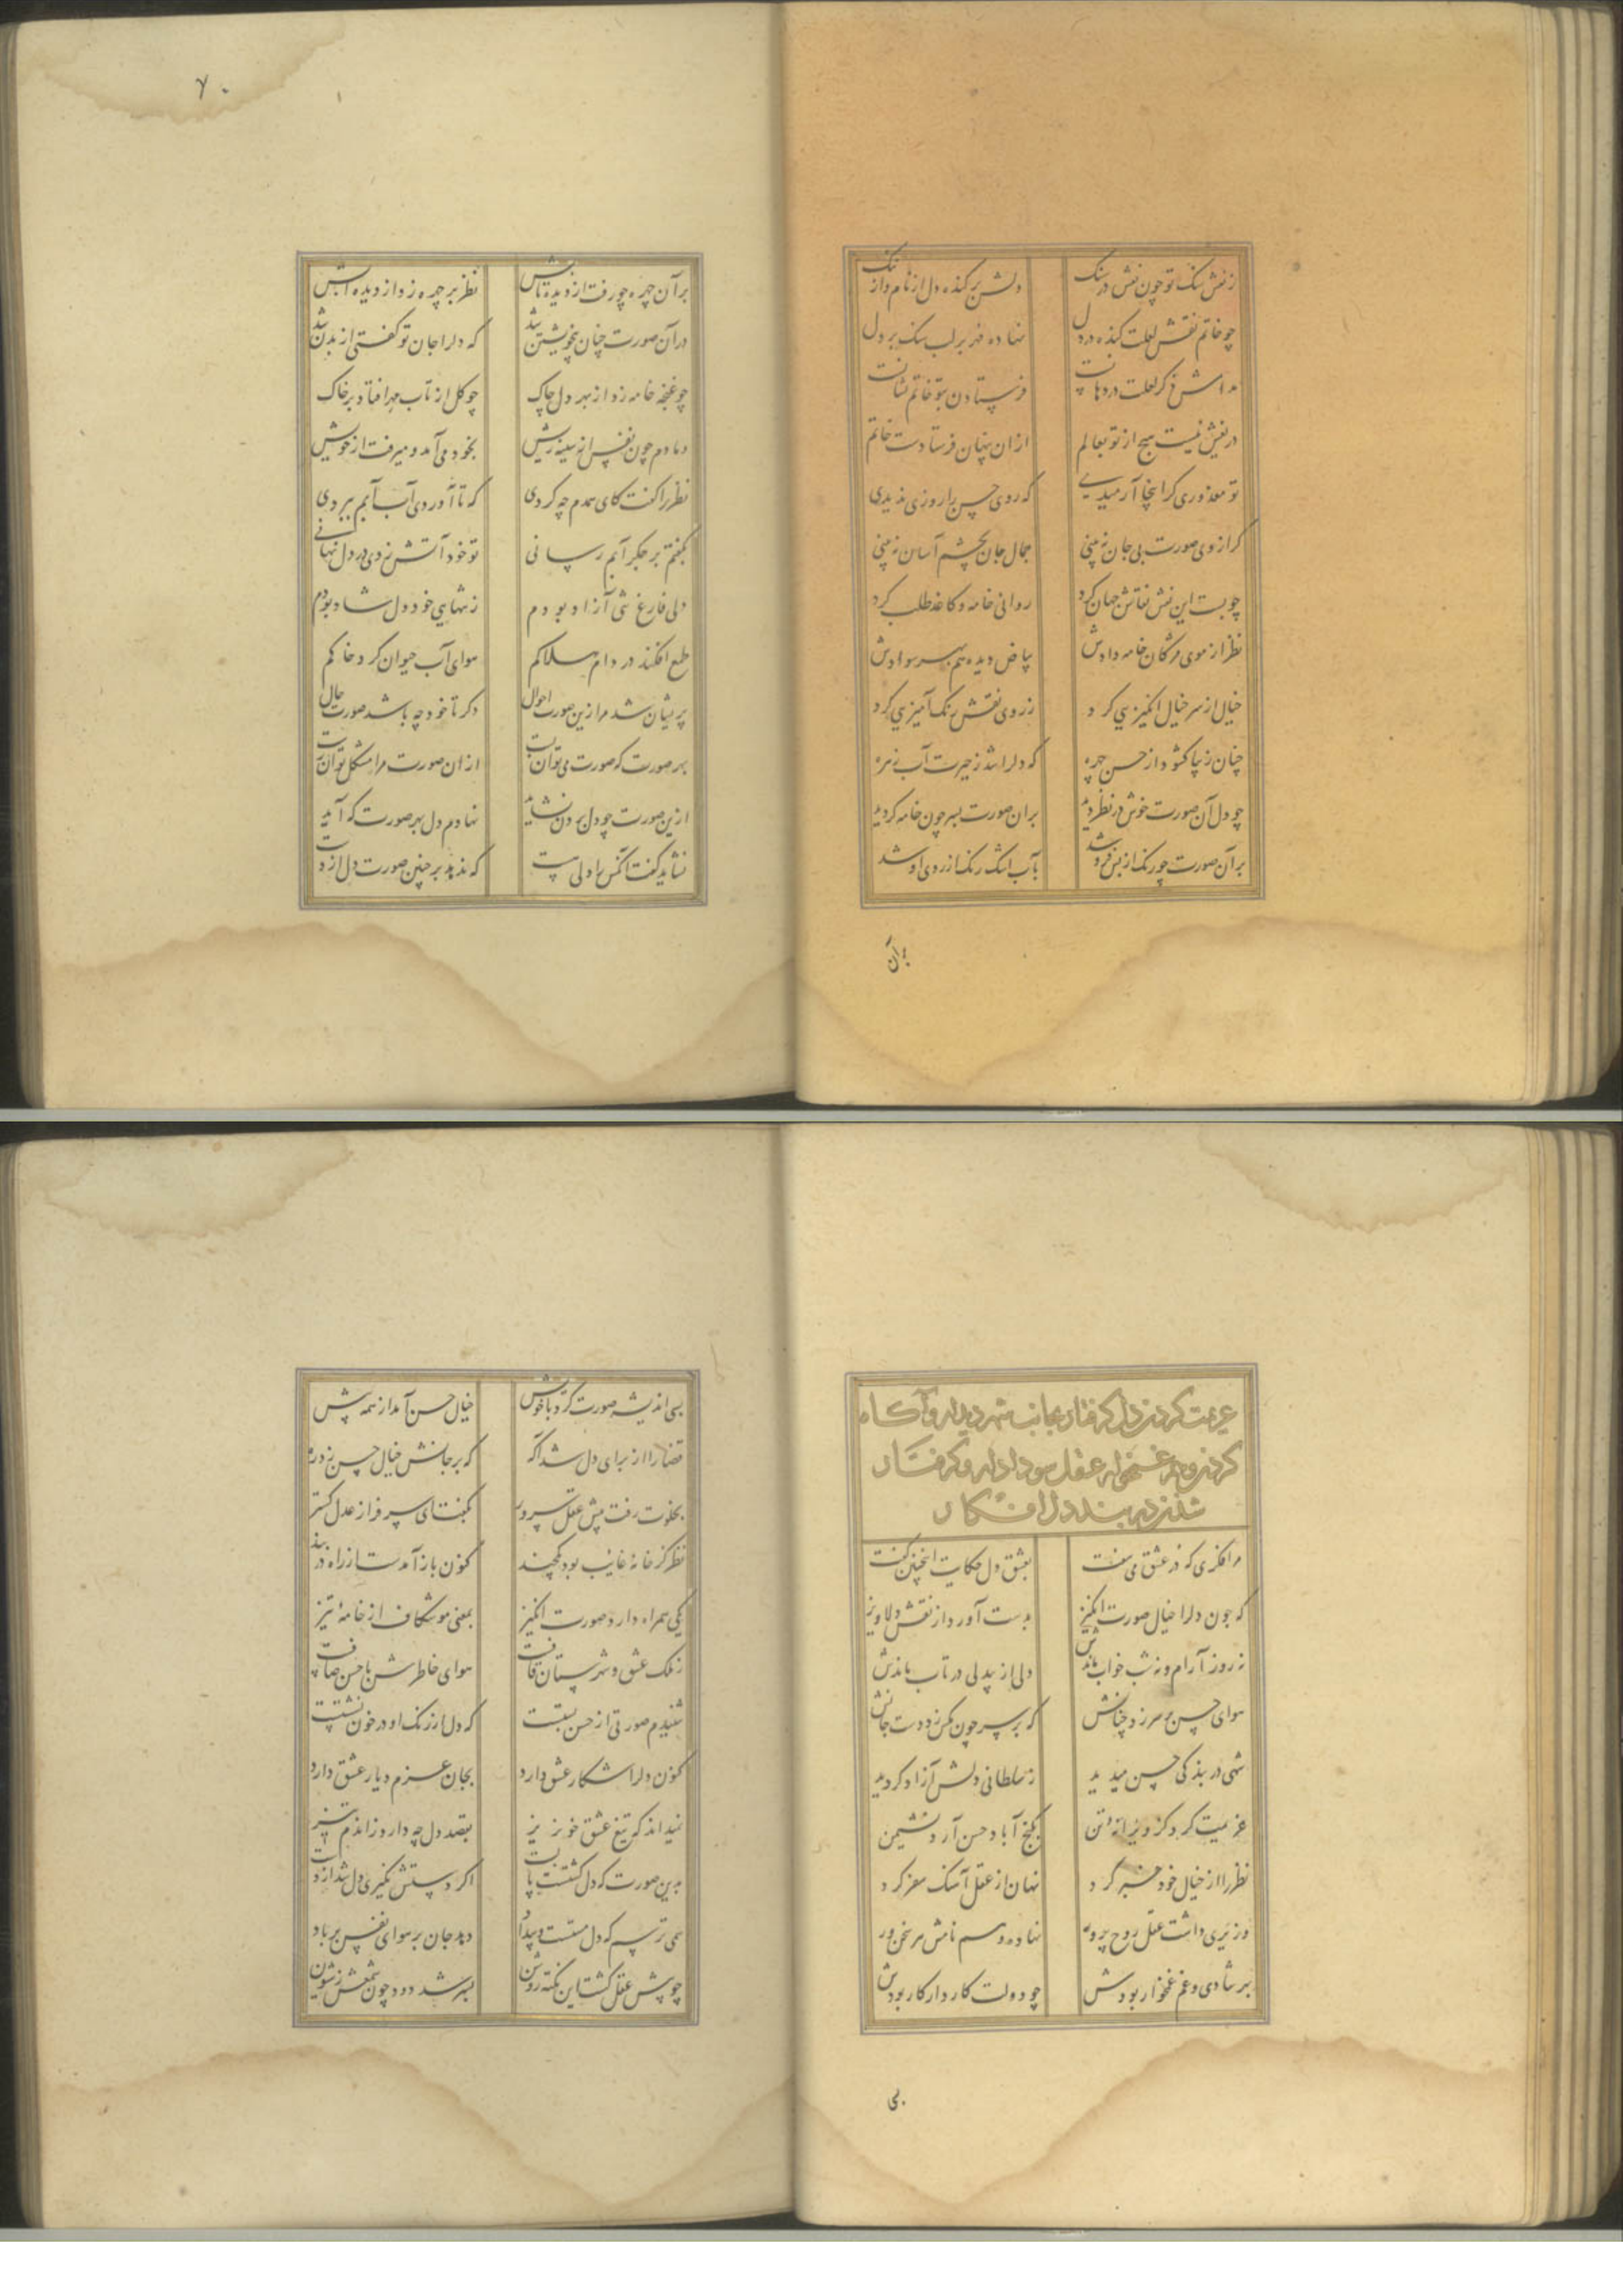 ز نقش سنگ تو چون نقش در سنگ
دلش برکنده دل از نام و از ننگ
چو خاتم نقش لعلت کنده در دل
نهاده مهر بر لب سنگ بر دل
مدامش ذکر لعلت در دهانست
فرستادن بتو خاتم نشانست
در نقش نیست هیچ از تو بعالم
از ان پنهان فرستادت خاتم
تو معذوری کر اینجا آرمیدی
که روی حسن را روزی ندیدی
کر از وی صورت بی جان نه بینی
جمال جان بچشم آسان نه بینی
چو بست این نقش نقاش جهان کرد
روانی خامه و کاغذ طلب کرد
نظر از موی مژکان خامه دادش
بیاض دیده هم بهر سوادش
خیال از سر خیال انکیزیی کرد
ز روی نقش رنک آمیزیی کرد
چنان زیبا کشود از حسن چهره
که دلرا شد ز حیرت آب زهره
چو دل آن صورت خوش در نظر دید
بران صورت بسر چون خامه کردید
بر آن صورت چو رنک از بس فرو شد
بآب اشک رنک از روی او شد
بر آن
۷۰
بر آن چهره چو رفت از دیده تابش
نظر بر چهره زد از دیده آبش
در آن صورت چنان بیخویشتن شد
که دلرا جان تو کفتی از بدن شد
چو غنچه جامه زد از مهر دل چاک
چو کل از تاب مهر افتاد بر خاک
دمادم چون نفس از سینه ریش
بخود می آمد و میرفت از خویش
نظر را کفت کای همدم چه کردی
که تا آوردی آب آبم ببردی
بکفتم بر جکر آبم رسانی
تو خود آتش زدی در دل نهانی
دلی فارغ شی آزاد بودم
ز تنهایی خود دل شاد بودم
طمع افکند در دام هلاکم
هوای آب حیوان کرد خاکم
پریشان شد مرا زین صورت احوال
دکر تا خود چه باشد صورت حال
بهر صورت که صورت می توان بست
از ان صورت مرا مشکل توان رست
ازین صورت چو دل بردن نشاید
نهادم دل بهر صورت که آید
نشاید کفت آنکس را دلی هست
که ندهد بر چنین صورت دل از دست
عزیمت کردن دل کرفتار بجانب شهر دیدار و آکاه
کردن وهم غمخوار عقل سودا دار و کرفتار
شدن در بند دل افکار
هر افکری که در عشق می سفت
بعشق دل حکایت اینچنین کفت
که چون دلرا خیال صورت انکیز
بدست آورد از نقش دلاویز
نه روز آرام و نه شب خواب ماندش
دلی از بیدلی در تاب ماندش
هوای حسن بر سر زد چنانش
که بر سر چون مکس زد دست جانش
شهی در بندکی حسن میدید
ز سلطانی دلش آزاد کردید
عزیمت کرد کز ویرانه تن
بکنج آباد حسن آرد نشیمن
نظر را از خیال خود خبر کرد
نهان از عقل آهنک سفر کرد
وزیری داشت عقل روح پرور
نهاده وهم نامش هر سخن ور
بهر شادی و غم غمخوار بودش
چو دولت کار دار کار بودش
بسی
بسی اندیشه صورت کرد با خویش
خیال حسن آمد از همه پیش
قضا را از برای دل شد آکه
که بر جانش خیال حسن زد ره
بخلوت رفت پیش عقل سرور
بکفت ای سرفراز عدل کستر
نظر کز خانه غایب بود یکچند
کنون باز آمدست از راه در بند
یکی همراه دارد صورت انکیز
بمعنی موشکاف از خامه تیز
ز ملک عشق و شهرستان قافست
هوای خاطرش با حسن صافست
شنیدم صورتی از حسن بستست
که دل از رنک او در خون نشستست
کنون دلرا شکار عشق دارد
بجان عزم دیار عشق دارد
نمیداند که تیغ عشق خونریز
بقصد دل چه دارد زاندم تیز
بدین صورت که دل کشتست پابست
اکر دستش نکیری دل شد از دست
همی ترسم که دل مستست و شیدا
دهد جان بر هوای نفس بر باد
چو پیش عقل کشت این نکته روشن
بسر شد دود چون شمعش ز شیون